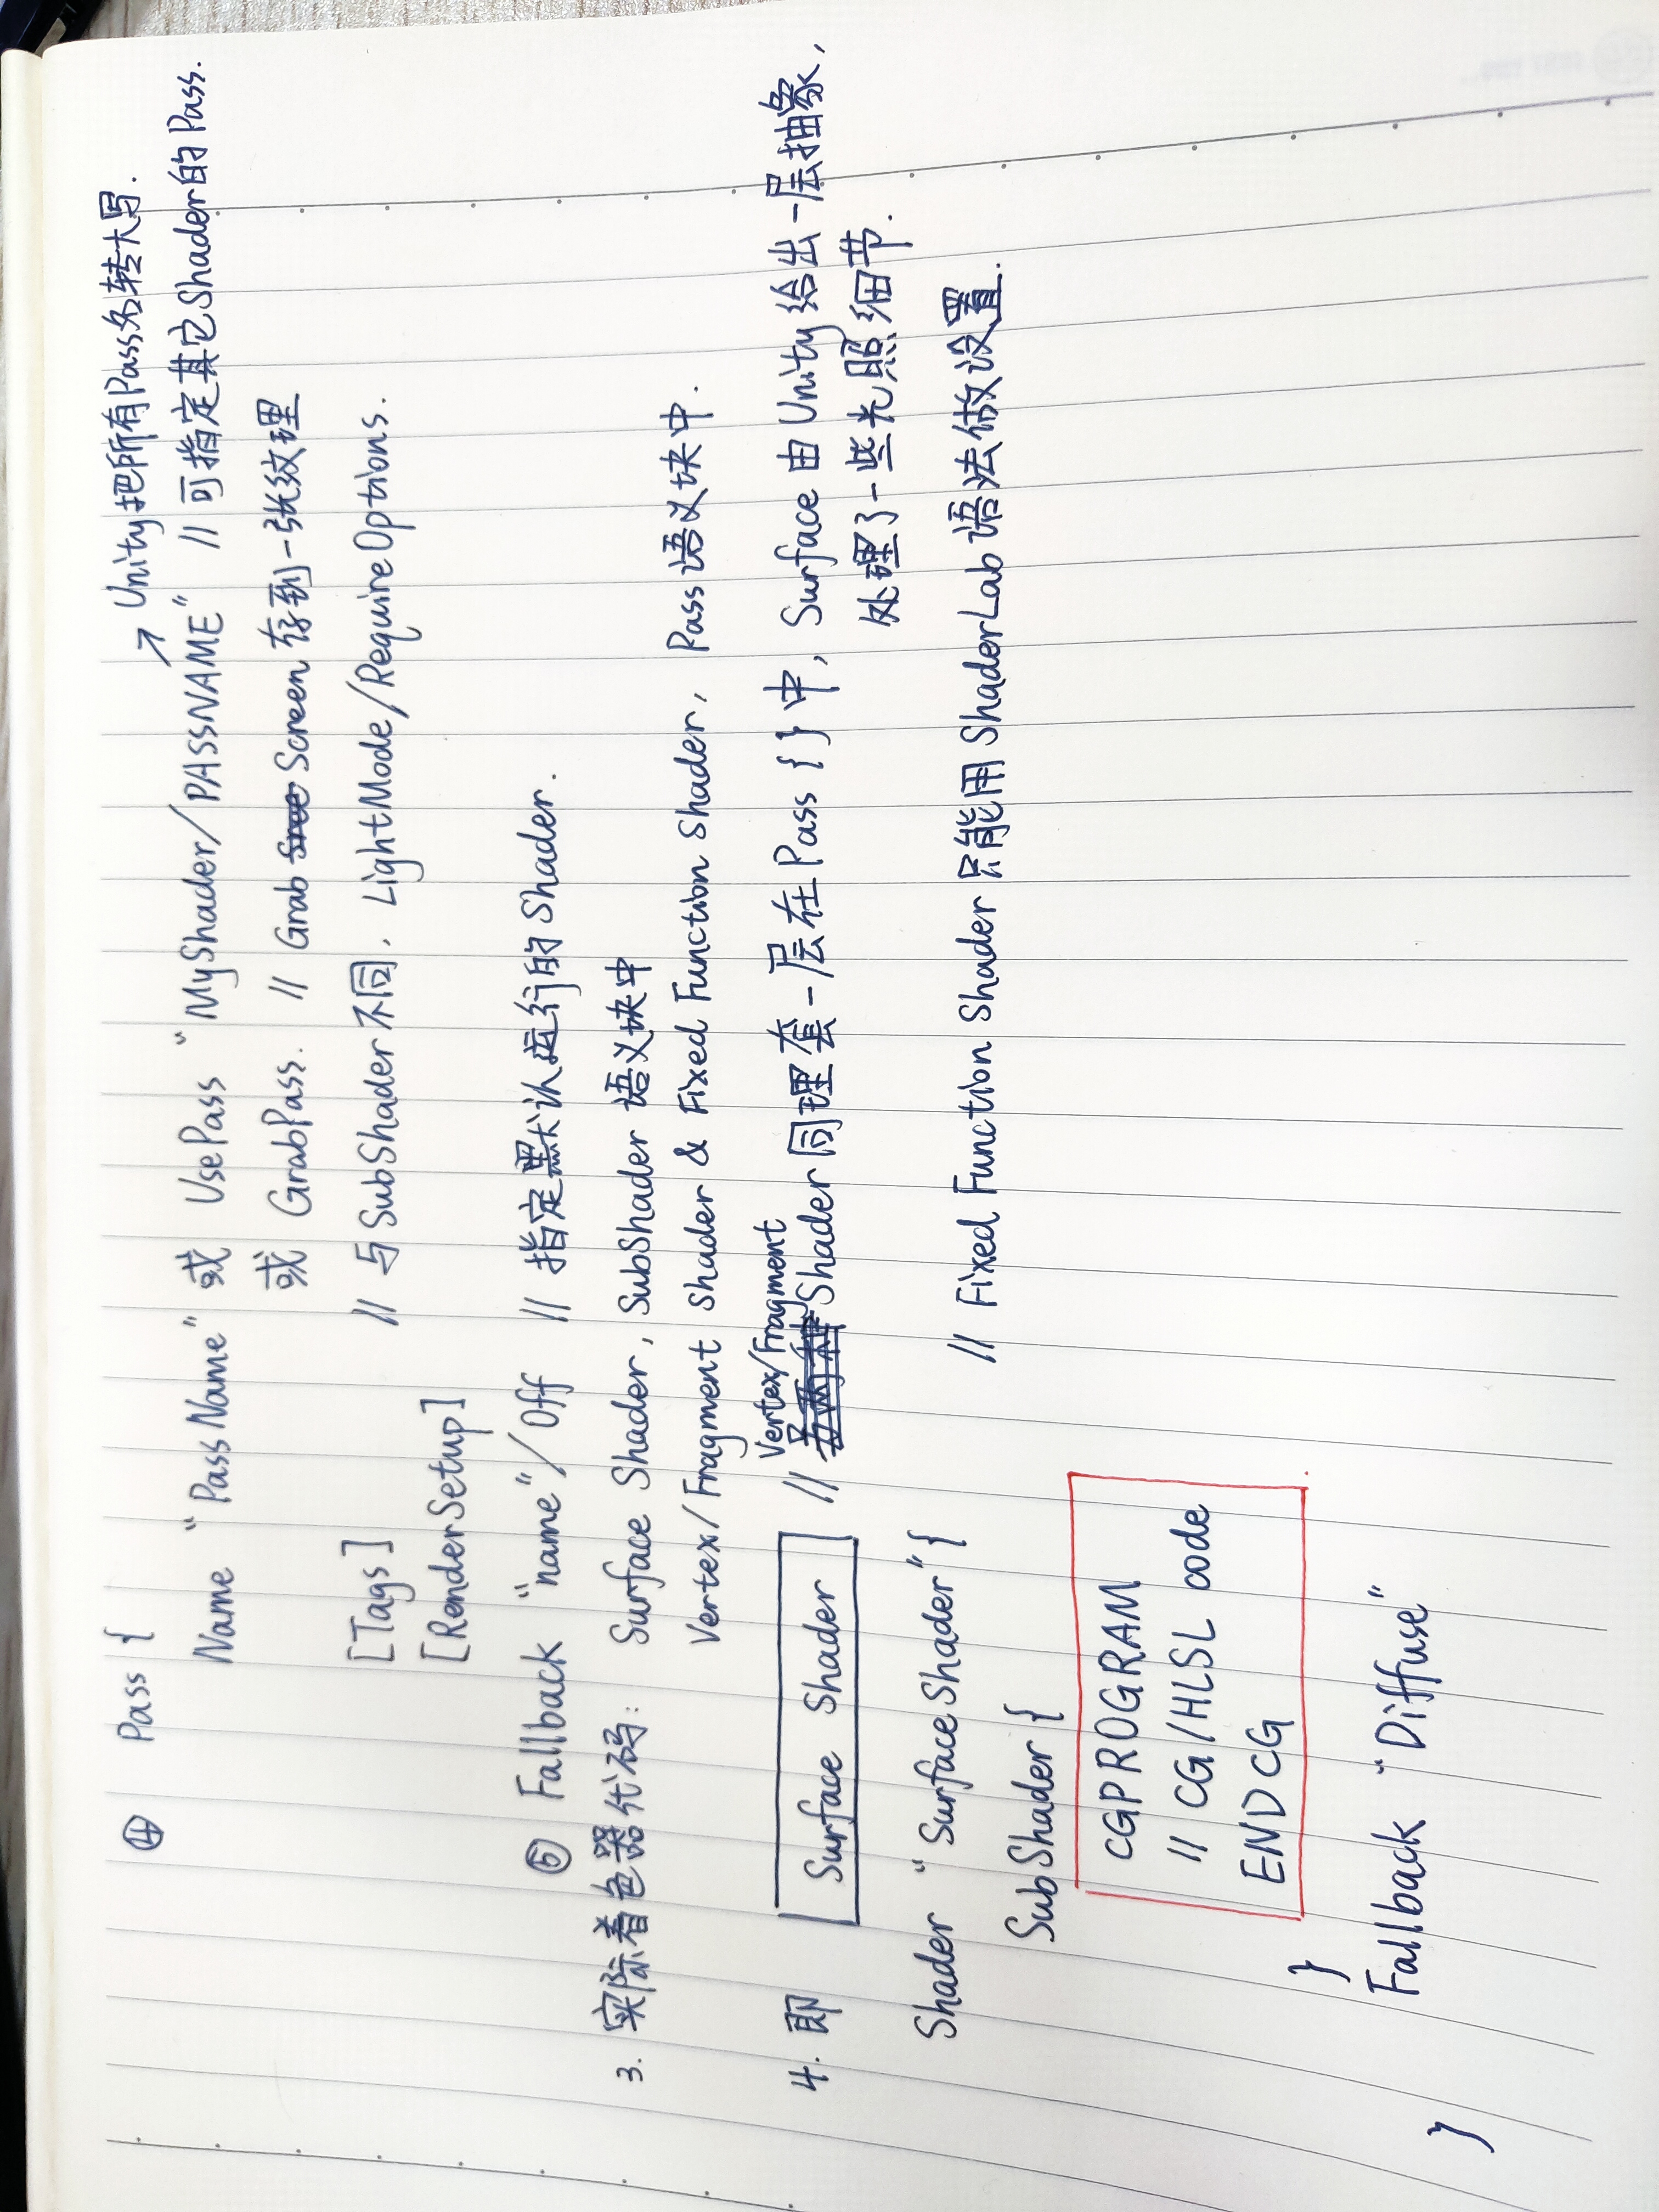 Unity把所有Pass名转大写.
④ Pass {
Name “PassName” 或 UsePass “MyShader/PASSNAME” // 可指定其它Shader的Pass.
或 GrabPass. // Grab Screen 存到一张纹理
[Tags] // 与SubShader不同, LightMode/RequireOptions.
[RenderSetup]
⑤ Fallback “name”/Off // 指定默认运行的Shader.
3. 实际着色器代码: Surface Shader, SubShader 语义块中
Vertex/Fragment Shader & Fixed Function Shader, Pass语义块中.
4. 即 Surface Shader // Vertex/Fragment Shader同理套一层在Pass { }中, Surface由Unity给出一层抽象,
处理了一些光照细节.
Shader “SurfaceShader” {
// Fixed Function Shader只能用ShaderLab语法做设置.
SubShader {
CGPROGRAM
// CG/HLSL code
ENDCG
}
Fallback “Diffuse”
}